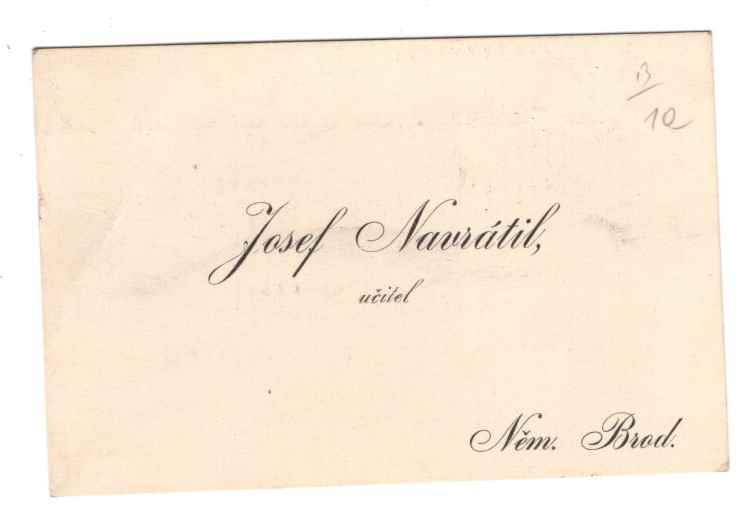 B
10
Josef Navrátil,
učitel
Něm. Brod.